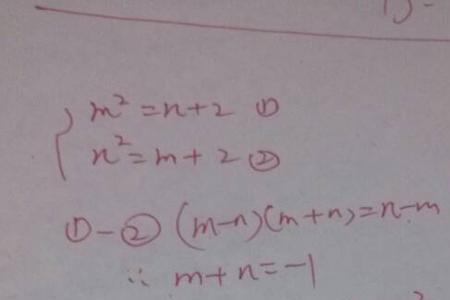 m²=n+2 ①
n²=m+2 ②
①-② (m-n)(m+n)=n-m
∴ m+n=-1